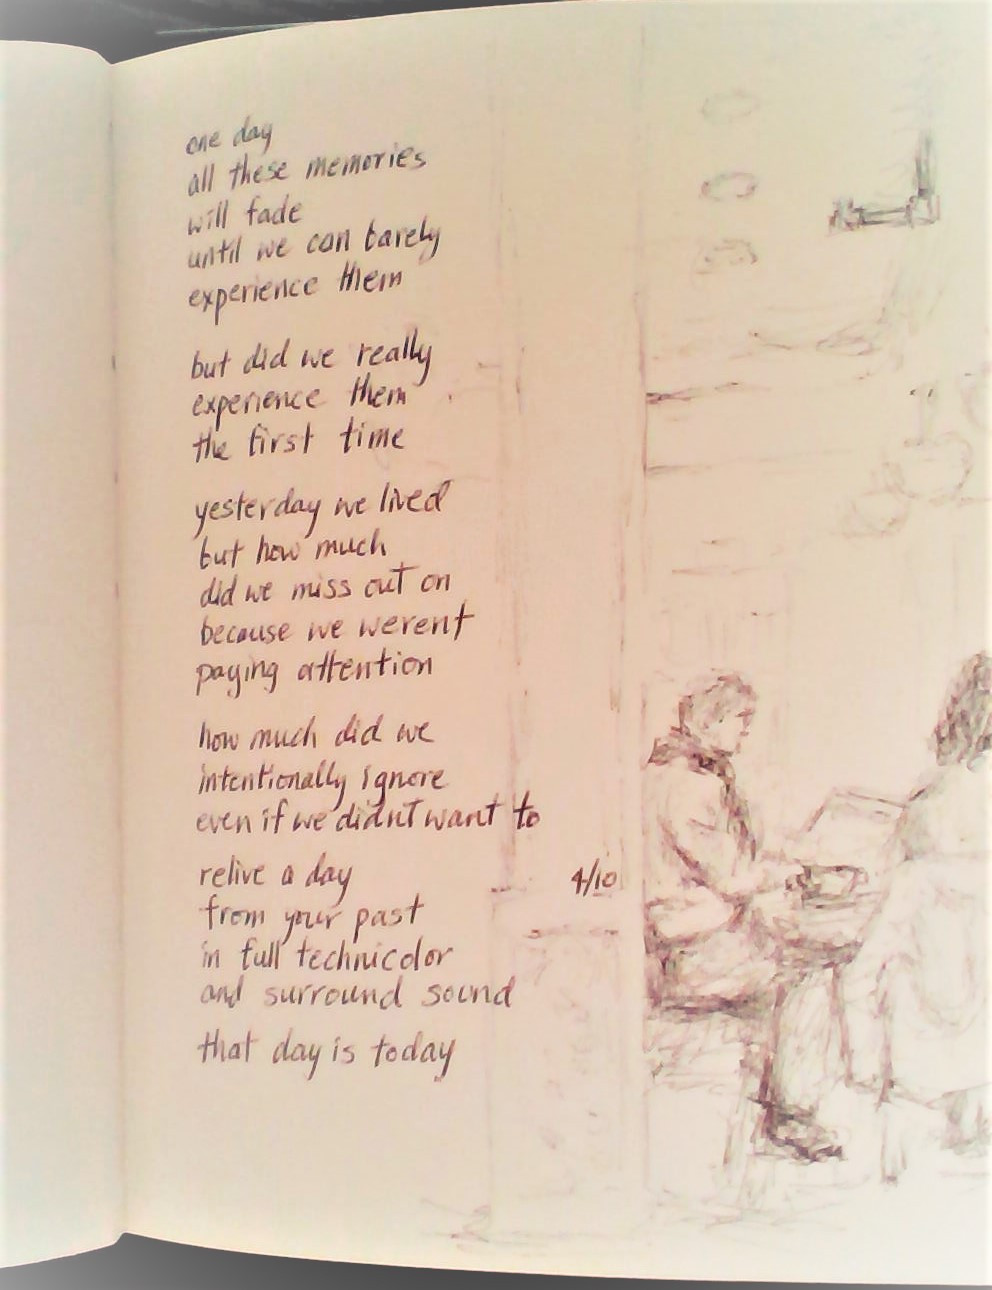 one day
all these memories
will fade
until we can barely
experience them
but did we really
experience them
the first time
yesterday we lived
but how much
did we miss out on
because we werent
paying attention
how much did we
intentionally ignore
even if we didnt want to
relive a day
4/10
from your past
in full technicolor
and surround sound
that day is today